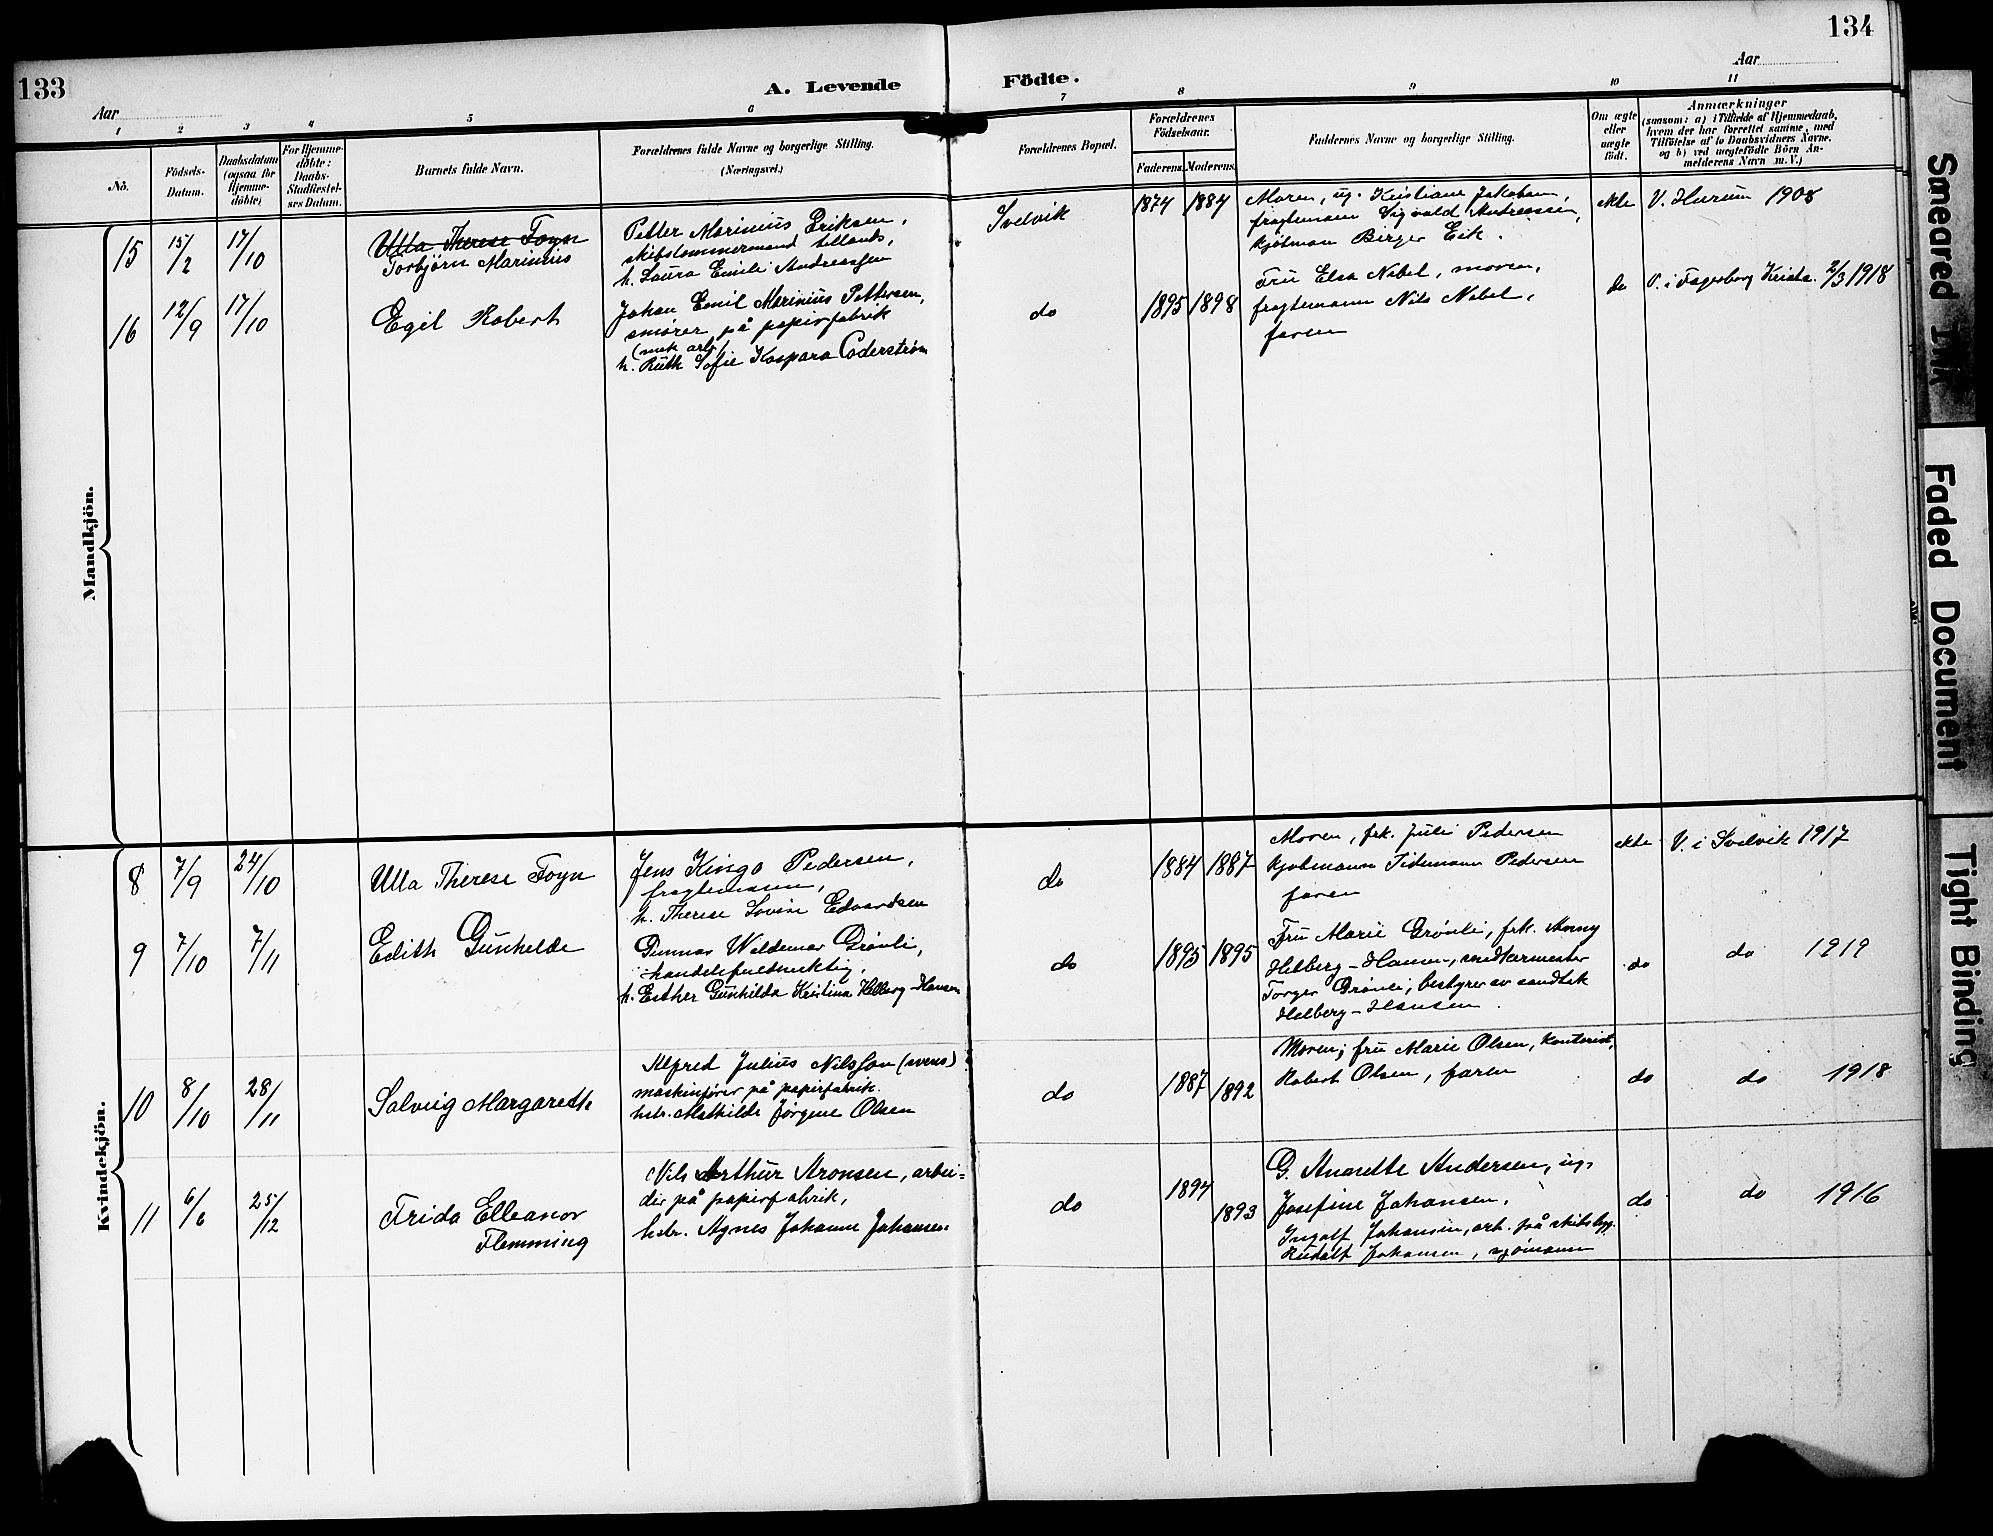 133
134
A. Levende Födte.
Aar
Aar
1 2 3 4 5 6 7 8 9 10 11
No.
Födsels-
Datum.
Daabsdatum
(ogsaa for
Hjemme-
döbte)
For Hjemme-
döbte:
Daabs-
Stadfæstel-
ses Datum.
Barnets fulde Navn.
Forældrenes fulde Navne og borgerlige Stilling.
(Næringsvei.)
Forældrenes Bopæl.
Forældrenes
Födselsaar.
Faderens. Moderens.
Faddernes Navne og borgerlige Stilling.
Om ægte
eller
uægte
födt.
Anmærkninger
(saasom: a) i Tilfælde af Hjemmedaab,
hvem der har forrettet samme, med
Tilföielse af to Daabsvidners Navne.
og b) ved uægtefödte Börn An-
melderens Navn m. V.)
Mandkjön.
15
15/2
17/10
Ulla Therese Foyn
Torbjørn Marinius
Petter Marinius Eriksen,
skibstømmermand tillands,
h. Laura Emilie Andreassen
Svelvik
1874 1884
Moren, ug. Kristiane Jakobsen,
fragtemann Sigvald Andreassen,
kjøbman Birger Eik.
ekte
V. Hurum 1908
16
12/9
17/10
Egil Robert
Johan Emil Marinius Pettersen,
smører på papirfabrik
(mek. arb.)
h. Ruth Sofie Kaspara Cederstrøm
do
1895 1898
Fru Elsa Nebel, moren,
fragtemann Nils Nebel,
faren
do
V. i Fagerborg Krista. 2/3 1918
Kvindekjön.
8
7/9
24/10
Ulla Therese Foyn
Jens Kingo Pedersen,
fragtemann,
h. Therese Lovise Edvardsen
do
1884 1887
Moren, frk. Julie Pedersen
kjøbmann Tidemann Pedersen
faren
ekte
V. i Svelvik 1917
9
7/10
7/11
Edith Gunhelde
Gunnar Waldemar Grønli,
handelsfuldmektig,
h. Esther Gunhilda Kristina Helberg-Hansen
do
1895 1895
Fru Marie Grønli, frk. Anny
Helberg-Hansen, snedkermester
Torger Grønli, bestyrer av sandtak
Helberg-Hansen.
do
do 1919
10
8/10
28/11
Solveig Margareth
Alfred Julius Nilsson (svensk)
maskinfører på papirfabrik.
hstr. Mathilde Jørgine Olsen
do
1887 1892
Moren; fru Marie Olsen, kontorist,
Robert Olsen, faren
do
do 1918
11
6/6
25/12
Frida Elleanor
Flemming
Nils Arthur Aronsen, arbei-
der på papirfabrik,
hstr. Agnes Johanne Johansen
do
1894
1893
G. Annette Andersen, ug.
Josefine Johansen,
Ingolf Johansen, arb. på skibsbygg.
Rudolf Johansen, sjømann
do
do 1916
Smeared Ink
Faded Document
Tight Binding